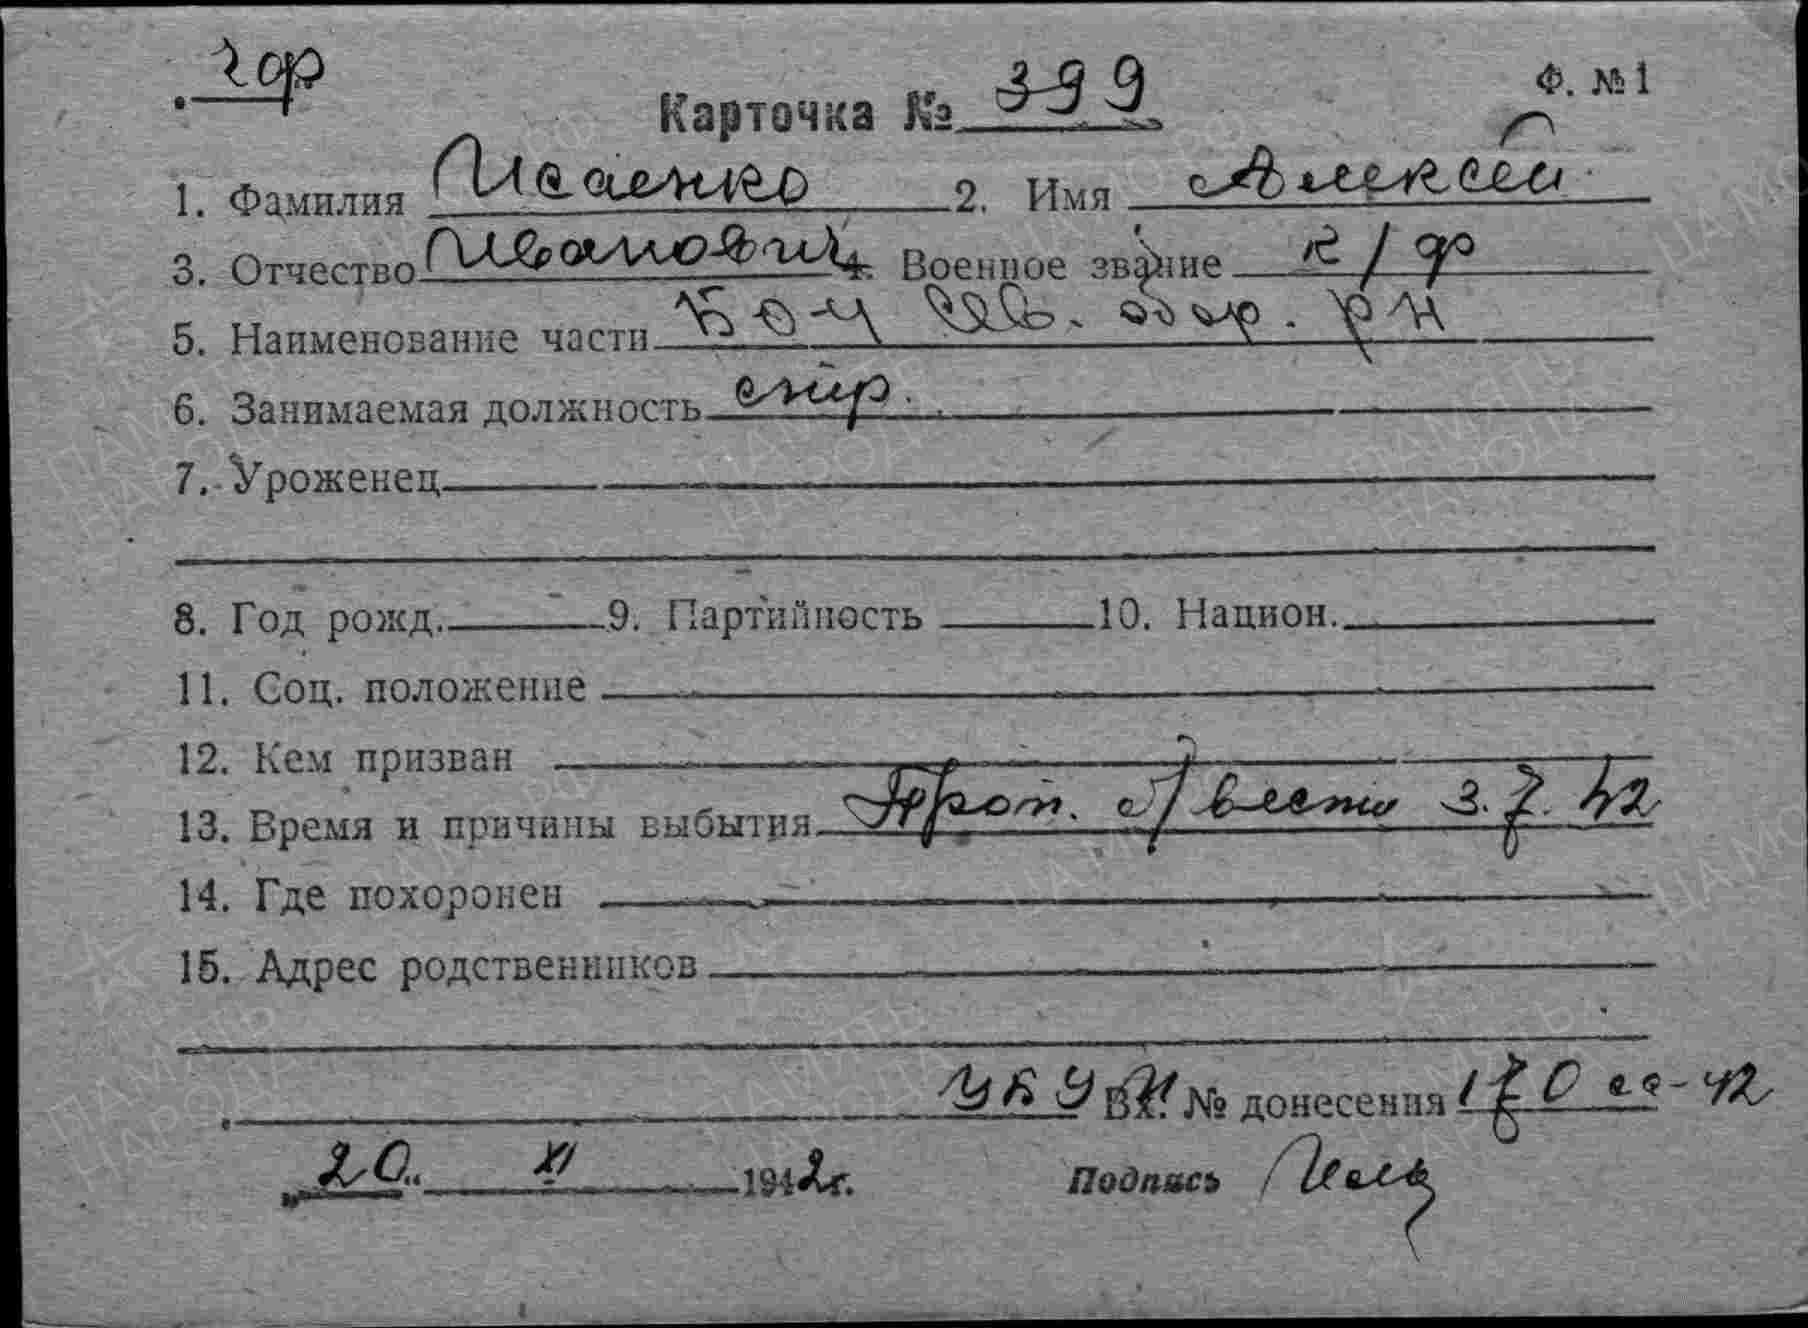 Ф. №1
Карточка № 399
1. Фамилия Исаенко 2. Имя Алексей
3. Отчество Иванович 4. Военное звание к/ф
5. Наименование части БОУ Сев. обор. рн
6. Занимаемая должность стр.
7. Уроженец
8. Год рожд. 9. Партийность 10. Национ.
11. Соц. положение
12. Кем призван
13. Время и причины выбытия Проп. б/вести 3.7.42
14. Где похоронен
15. Адрес родственников
Вх. № донесения 170 сс-42
„20“ XI 1942г. Подпись